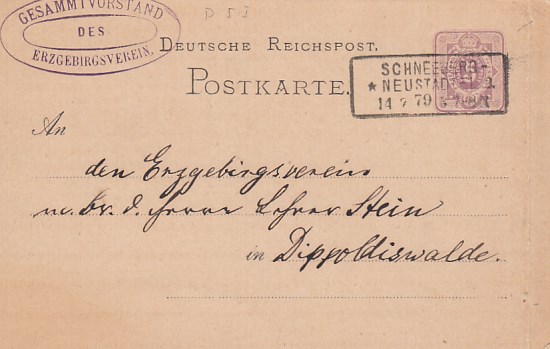 GESAMMTVORSTAND
DES
ERZGEBIRGSVEREIN.
D 53
DEUTSCHE REICHSPOST.
POSTKARTE.
SCHNEEBERG-
* NEUSTÄDTEL
14 2 79
An
den Erzgebirgsverein
Herrn Lehrer Stein
in Dippoldiswalde.